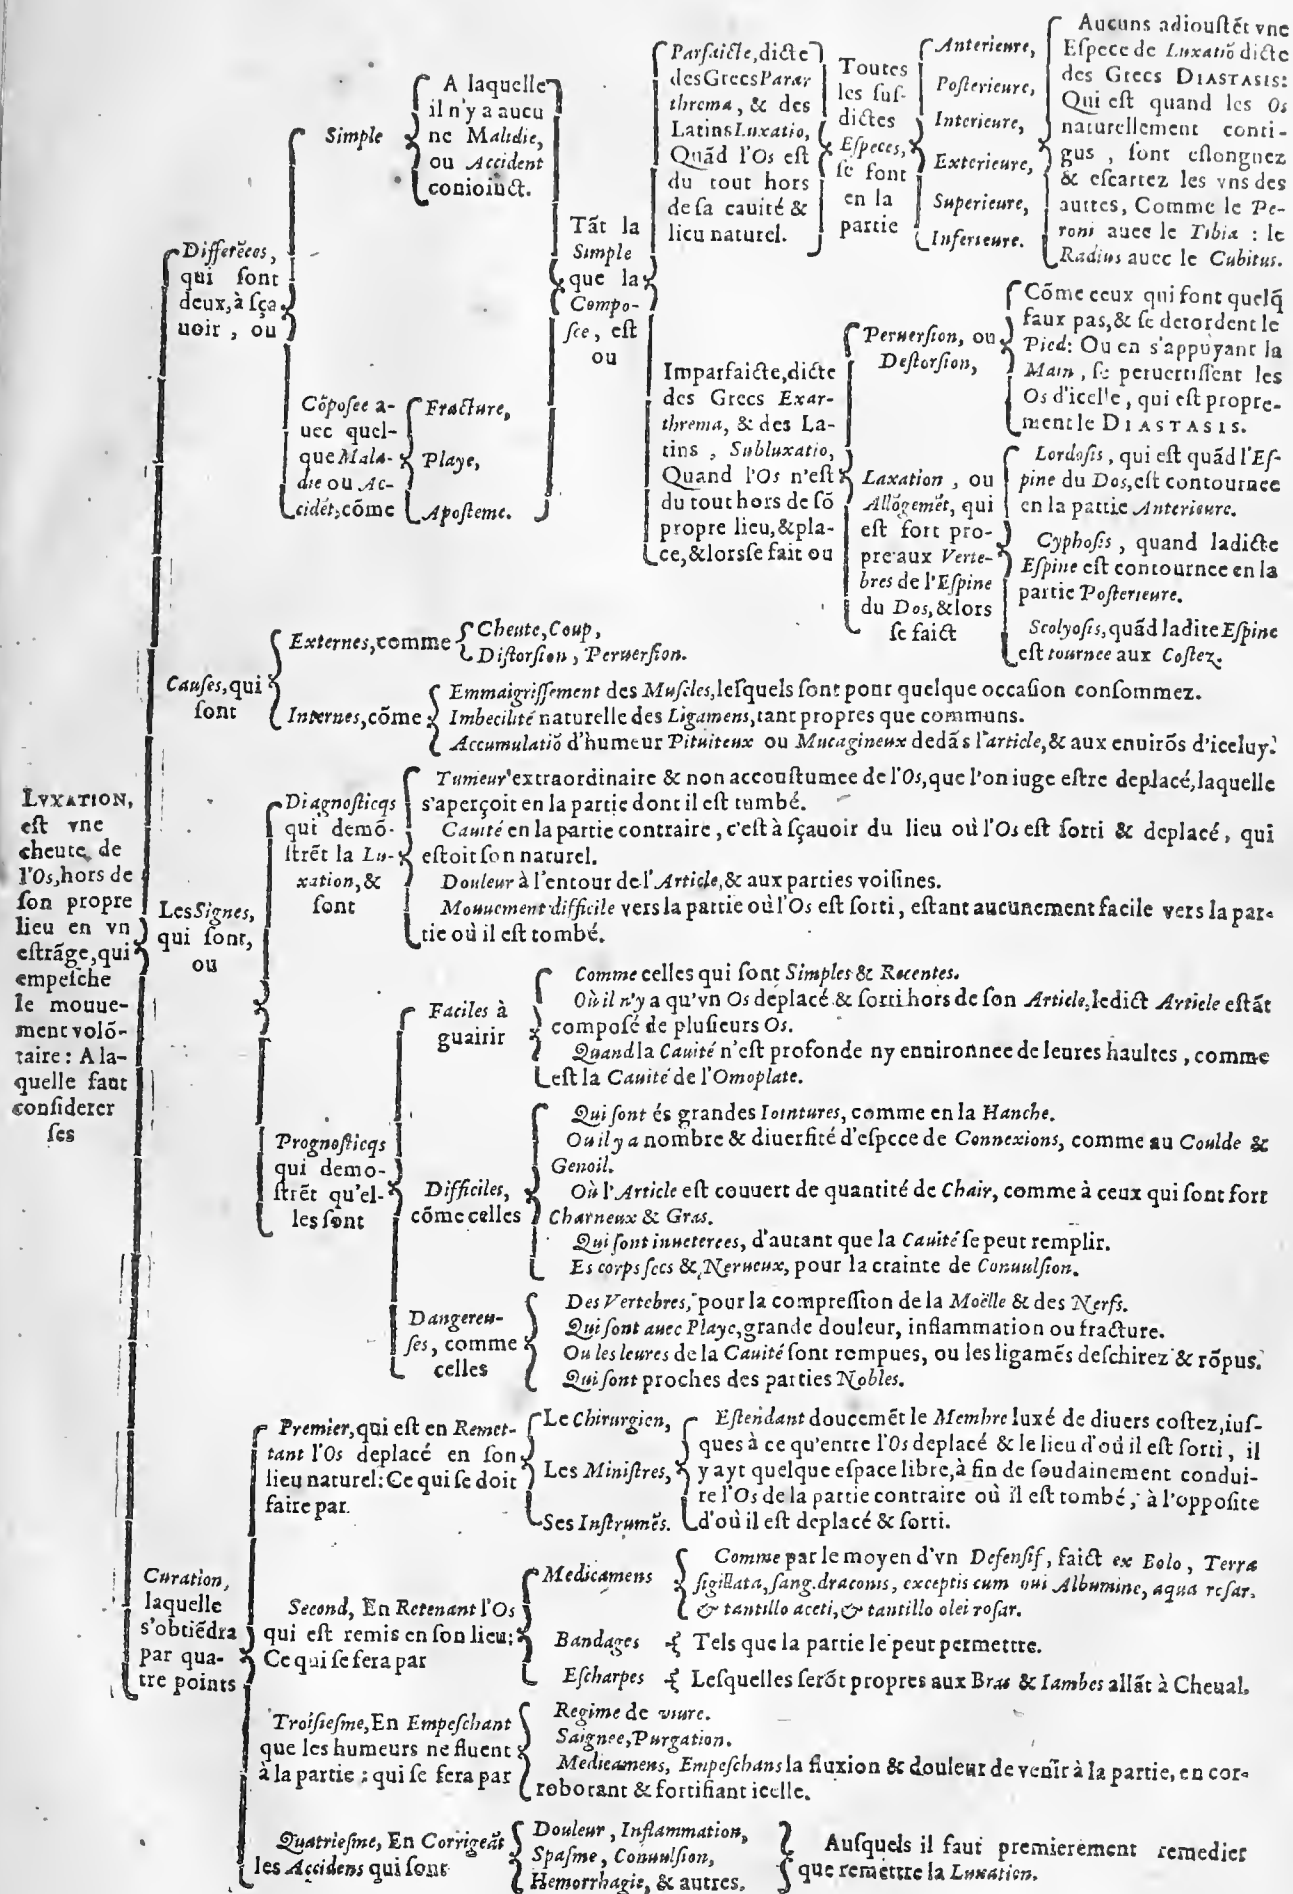 LVXATION,
eſt vne
cheute de
l'Os, hors de
ſon propre
lieu en vn
eſtrãge, qui
empeſche
le mouue-
ment volõ-
taire: A la-
quelle faut
conſiderer
ſes
Differẽces,
qui ſont
deux, à ſça-
uoir, ou
Simple
A laquelle
il n'y a aucu
ne Maladie,
ou Accident
conioinct.
Cõpoſee a-
uec quel-
que Mala-
die ou Ac-
cidẽt, cõme
Fracture,
Playe,
Apoſteme.
Tãt la
Simple
que la
Compo-
ſee, eſt
ou
Parfaicte, dicte
des Grecs Parar
threma, & des
Latins Luxatio,
Quãd l'Os eſt
du tout hors
de ſa cauité &
lieu naturel.
Toutes
les ſuſ-
dictes
Eſpeces,
ſe font
en la
partie
Anterieure,
Poſterieure,
Interieure,
Exterieure,
Superieure,
Inferieure.
Aucuns adiouſtẽt vne
Eſpece de Luxatiõ dicte
des Grecs DIASTASIS:
Qui eſt quand les Os
naturellement conti-
gus, ſont eſlongnez
& eſcartez les vns des
autres, Comme le Pe-
roni auec le Tibia: le
Radius auec le Cubitus.
Imparfaicte, dicte
des Grecs Exar-
threma, & des La-
tins, Subluxatio,
Quand l'Os n'eſt
du tout hors de ſõ
propre lieu, & pla-
ce, & lors ſe fait ou
Peruerſion, ou
Deſtorſion,
Cõme ceux qui font quelq̃
faux pas, & ſe detordent le
Pied: Ou en s'appuyant la
Main, ſe peruertiſſent les
Os d'icelle, qui eſt propre-
ment le DIASTASIS.
Laxation, ou
Allõgemẽt, qui
eſt fort pro-
pre aux Verte-
bres de l'Eſpine
du Dos, & lors
ſe faict
Lordoſis, qui eſt quãd l'Eſ-
pine du Dos, eſt contournee
en la partie Anterieure.
Cyphoſis, quand ladicte
Eſpine eſt contournee en la
partie Poſterieure.
Scolyoſis, quãd ladite Eſpine
eſt tournee aux Coſtez.
Cauſes, qui
ſont
Externes, comme
Cheute, Coup,
Diſtorſion, Peruerſion.
Internes, cõme
Emmaigriſſement des Muſcles, leſquels ſont pour quelque occaſion conſommez.
Imbecilité naturelle des Ligamens, tant propres que communs.
Accumulatiõ d'humeur Pituiteux ou Mucagineux dedãs l'article, & aux enuirõs d'iceluy.
Les Signes,
qui ſont,
ou
Diagnoſticqs
qui demõ-
ſtrẽt la Lu-
xation, &
ſont
Tumeur extraordinaire & non accouſtumee de l'Os, que l'on iuge eſtre deplacé, laquelle
s'aperçoit en la partie dont il eſt tumbé.
Cauité en la partie contraire, c'eſt à ſçauoir du lieu où l'Os eſt ſorti & deplacé, qui
eſtoit ſon naturel.
Douleur à l'entour de l'Article, & aux parties voiſines.
Mouuement difficile vers la partie où l'Os eſt ſorti, eſtant aucunement facile vers la par-
tie où il eſt tombé.
Prognoſticqs
qui demo-
ſtrẽt qu'el-
les ſont
Faciles à
guairir
Comme celles qui ſont Simples & Recentes.
Où il n'y a qu'vn Os deplacé & ſorti hors de ſon Article, ledict Article eſtãt
compoſé de pluſieurs Os.
Quand la Cauité n'eſt profonde ny enuironnee de leures haultes, comme
eſt la Cauité de l'Omoplate.
Difficiles,
cõme celles
Qui ſont és grandes Iointures, comme en la Hanche.
Ou il y a nombre & diuerſité d'eſpece de Connexions, comme au Coulde &
Genoil.
Où l'Article eſt couuert de quantité de Chair, comme à ceux qui ſont fort
Charneux & Gras.
Qui ſont inueterees, d'autant que la Cauité ſe peut remplir.
Es corps ſecs & Nerueux, pour la crainte de Conuulſion.
Dangereu-
ſes, comme
celles
Des Vertebres, pour la compreſſion de la Moëlle & des Nerfs.
Qui ſont auec Playe, grande douleur, inflammation ou fracture.
Ou les leures de la Cauité ſont rompues, ou les ligamẽs deſchirez & rõpus.
Qui ſont proches des parties Nobles.
Curation,
laquelle
s'obtiẽdra
par qua-
tre points
Premier, qui eſt en Remet-
tant l'Os deplacé en ſon
lieu naturel: Ce qui ſe doit
faire par.
Le Chirurgien,
Les Miniſtres,
Ses Inſtrumẽs.
Eſtendant doucemẽt le Membre luxé de diuers coſtez, iuſ-
ques à ce qu'entre l'Os deplacé & le lieu d'où il eſt ſorti, il
y ayt quelque eſpace libre, à fin de ſoudainement condui-
re l'Os de la partie contraire où il eſt tombé, à l'oppoſite
d'où il eſt deplacé & ſorti.
Second, En Retenant l'Os
qui eſt remis en ſon lieu:
Ce qui ſe fera par
Medicamens
Comme par le moyen d'vn Defenſif, faict ex Bolo, Terra
ſigillata, ſang. draconis, exceptis cum oui Albumine, aqua roſar.
& tantillo aceti, & tantillo olei roſar.
Bandages
Tels que la partie le peut permettre.
Eſcharpes
Leſquelles ſerõt propres aux Bras & Iambes allãt à Cheual.
Troiſieſme, En Empeſchant
que les humeurs ne fluent
à la partie: qui ſe fera par
Regime de viure.
Saignee, Purgation.
Medicamens, Empeſchans la fluxion & douleur de venir à la partie, en cor-
roborant & fortifiant icelle.
Quatrieſme, En Corrigeãt
les Accidens qui ſont
Douleur, Inflammation,
Spaſme, Conuulſion,
Hemorrhagie, & autres.
Auſquels il faut premierement remedier
que remettre la Luxation.